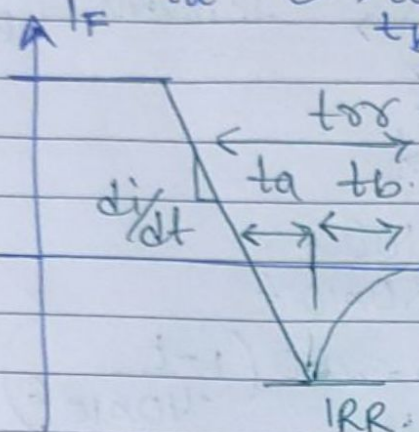 IF
trr
ta tb
di/dt
IRR.